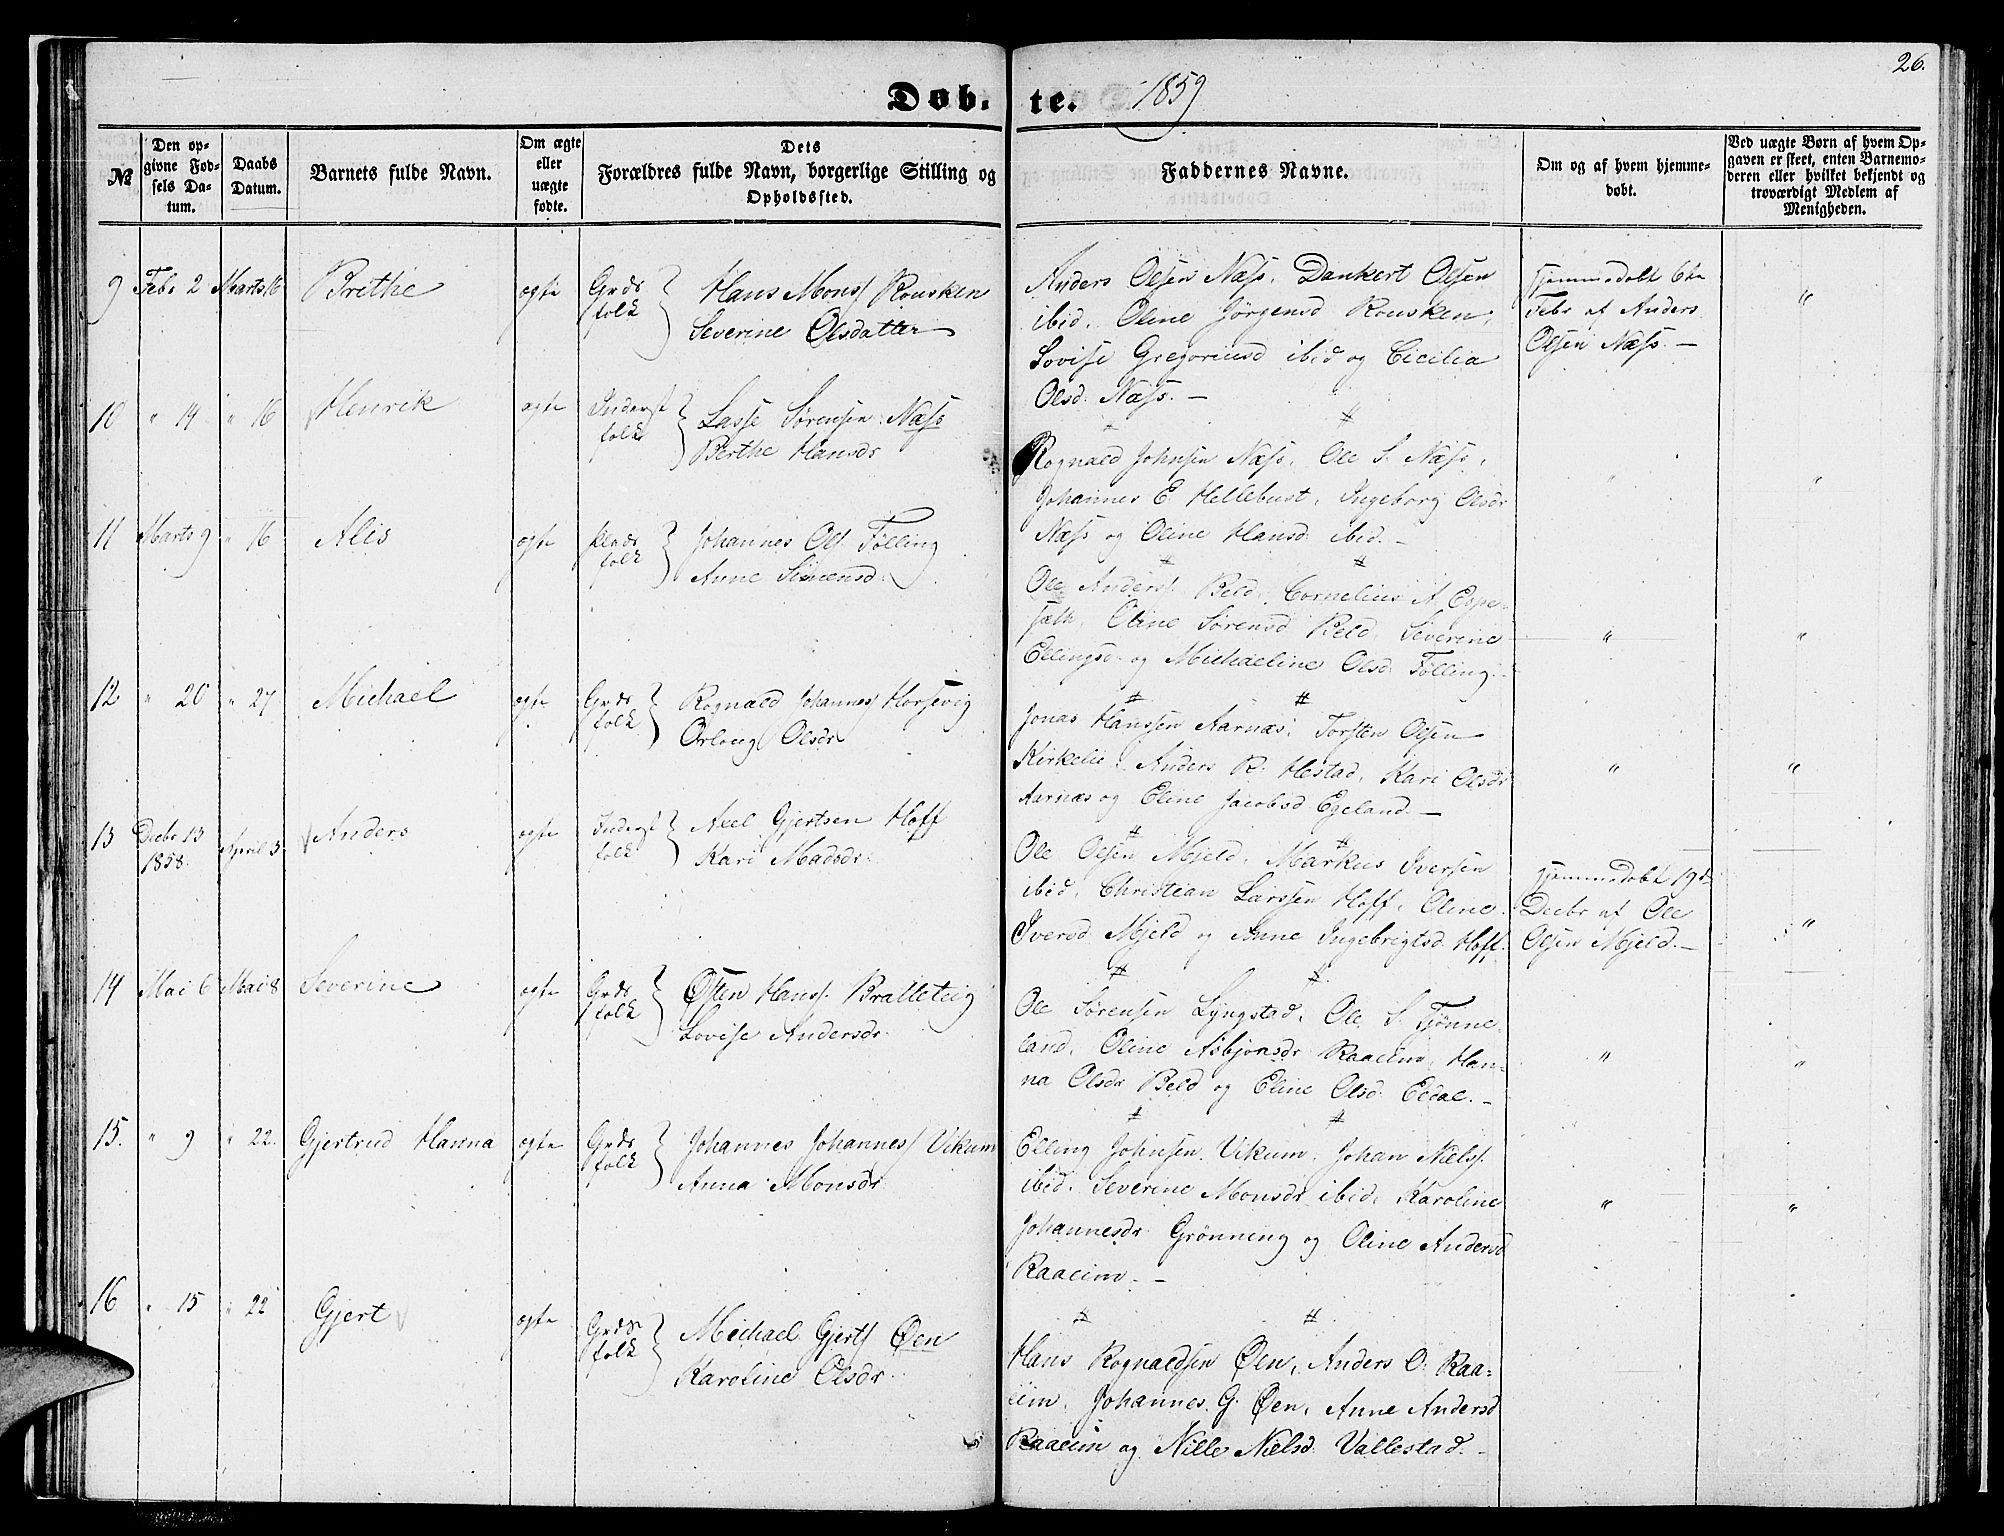 26.
Døb-te. 1859
№
Den op-
givne Fød-
sels Da-
tum.
Daabs
Datum.
Barnets fulde Navn.
Om ægte
eller
uægte
fødte.
Dets
Forældres fulde Navn, borgerlige Stilling og
Opholdssted.
Faddernes Navne.
Om og af hvem hjemme-
døbt.
Ved uægte Børn af hvem Op-
gaven er skeet, enten Barnemo-
deren eller hvilket bekjendt og
troværdigt Medlem af
Menigheden.
9 Febr 2 Marts 16 Brithe ægte Grds folk Hans Mons Rousken
Severine Olsdatter
Anders Olsen Næss, Dankert Olsen
ibid, Oline Jörgensd Rousken,
Lovise Gregoriusd ibid og Cicilia
Olsd. Næss. —
Hjemmedøbt 6te
Febr af Anders
Olsen Næss. —
"
10 " 14 " 16 Henrik ægte Inderst folk Lasse Sørensen Næss
Berthe Hansdr
Rognald Johnsen Næss, Ole S. Næss,
Johannes E. Hellebust, Ingeborg Olsdr
Næss og Oline Hansd. ibid. —
" "
11 Marts 9 " 16 Alis ægte Plads folk Johannes Ols. Tølling
Anne Simensd.
Ole Anders. Beld, Cornelius A. Espe-
sæth, Oline Sørensd Beld, Severine
Ellingsd. og Michaeline Olsd. Tølling.
" "
12 " 20 " 27 Michael ægte Grds folk Rognald Johannes Horsevig
Orloug Olsdr
Jonas Hanssen Aarnæs, Torsten Olsen
Kirkelie, Anders R. Hestad, Kari Olsdr
Aarnæs og Eline Jacobsd Egeland. —
" "
13 Decbr 13
1858. April 3. Anders ægte Inderst folk Axel Gjertsen Hoff
Kari Madsdr.
Ole Olsen Mjeld, Markus Iversen
ibid, Christian Larssen Hoff, Oline
Iversd Mjeld og Anne Ingebrigtsd. Hoff.
Hjemmedøbt 19de
Decbr af Ole
Olsen Mjeld. —
"
14 Mai 6 Mai 8 Severine ægte Grds folk Østen Hans. Bratteteig
Lovise Andersdr.
Ole Sørensen Lyngstad, Ole S. Tjønne-
land, Oline Asbjønsdr Raaeim, Han-
na Olsdr Beld og Eline Olsd. Eldal. —
" "
15. " 9 " 22. Gjertrud Hanna ægte Grds folk Johannes Johannes Vikum
Anna Monsdr
Elling Johnsen Vikum, Johan Niels.
ibid. Severine Monsdr ibid, Karoline
Johannesdr Grönning og Oline Andersd
Raaeim. —
" "
16 " 15 " 22 Gjert ægte Grds folk Michael Gjerts Øen
Karoline Olsdr.
Hans Rognaldsen Øen, Anders O. Raa-
eim, Johannes G. Øen, Anne Andersd
Raaeim og Nille Nielsd. Vallestad. —